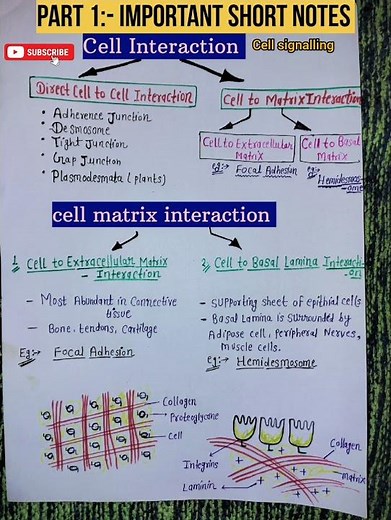 PART 1:- IMPORTANT SHORT NOTES
SUBSCRIBE
Cell Interaction
Cell signalling
Direct Cell to Cell Interaction
Cell to Matrix Interaction
• Adherence Junction
• Desmosome
• Tight Junction
• Gap Junction
• Plasmodesmata (plants)
Cell to Extracellular
Matrix
eg:→ Focal Adhesion
Cell to Basal
Matrix
eg:→ Hemidesmos
-ome
cell matrix interaction
1. Cell to Extracellular Matrix
- Interaction
– Most Abundant in Connective
tissue
– Bone, tendons, Cartilage
Eg:→ Focal Adhesion
2. Cell to Basal Lamina Interacti
-on
– Supporting sheet of epithial cells
– Basal Lamina is Surrounded by
Adipose cell, Peripheral Nerves,
muscle cells.
eg:→ Hemidesmosome
Collagen
Proteoglycans
Cell
Integrins
Laminin
Collagen
Matrix